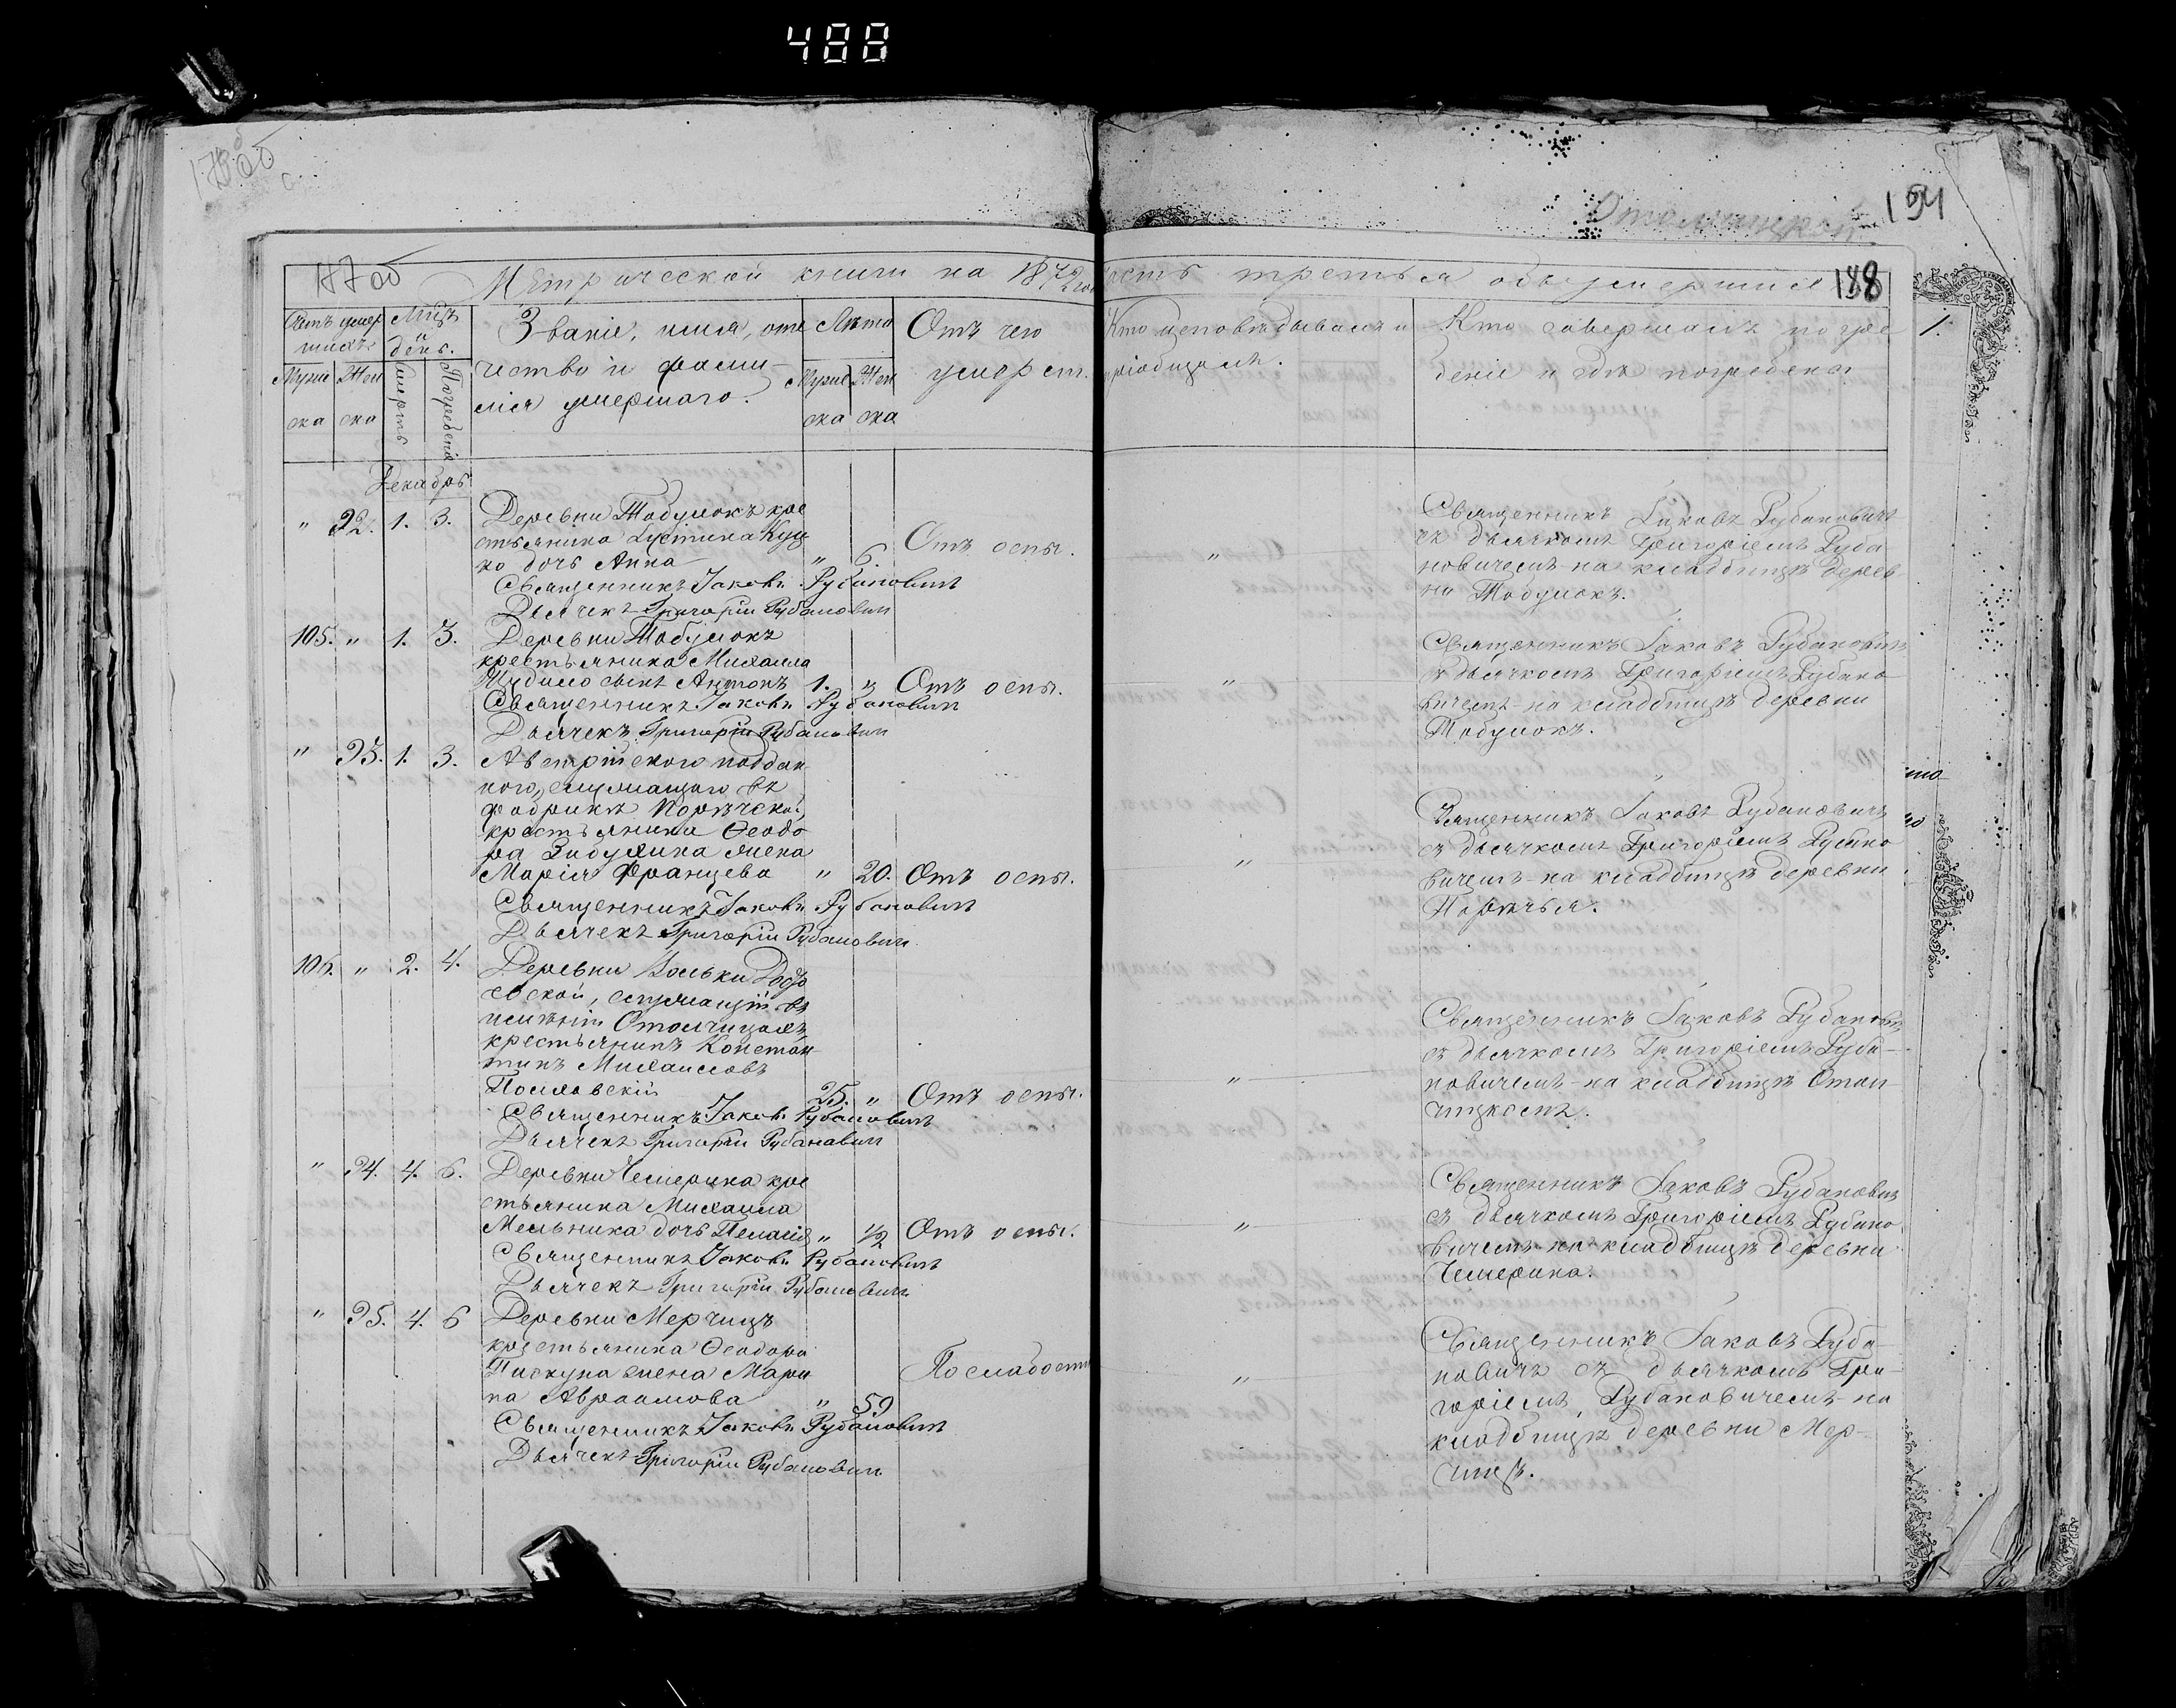 488
194
Отолчицкой
188
Метрической книги на 1872 год
часть третья объ умершихъ
Счетъ умер
шихъ.
Мѣсяцъ
и
день.
Мужес
ка
Жен
ска
Смерть
Погребенія
Званіе, имя, оте
чество и фами-
лія умершаго.
Лѣта
Мужес
ка
Жен
ска
Отъ чего
умеръ
Кто исповѣдывалъ и
пріобщалъ.
Кто совершалъ погре
беніе и гдѣ погребены
1.
Декабрь
" 92. 1. 3. Деревни Тобулокъ кре
стьянина Іустина Куц
ко дочь Анна " 6. Отъ оспы. "
Священникъ Іаковъ Рубановичъ
Дьячекъ Григорій Рубановичъ
Священникъ Іаковъ Рубановичъ
съ дьячкомъ Григоріемъ Руба
новичемъ на кладбищѣ дерев
ни Тобулокъ.
105. " 1. 3. Деревни Тобулокъ
крестьянина Михаила
Шудило сынъ Антонъ 1. " Отъ оспы. "
Священникъ Іаковъ Рубановичъ
Дьячекъ Григорій Рубановичъ
Священникъ Іаковъ Рубановичъ
съ дьячкомъ Григоріемъ Рубано
вичемъ на кладбищѣ деревни
Тобулокъ.
" 93. 1. 3. Австрійскаго поддан
ного, служащаго въ
фабрикѣ Порѣческой,
крестьянина Ѳеодо
ра Зибулика жена
Марія Францева " 20. Отъ оспы. "
Священникъ Іаковъ Рубановичъ
Дьячекъ Григорій Рубановичъ
Священникъ Іаковъ Рубановичъ
съ дьячкомъ Григоріемъ Рубано
вичемъ на кладбищѣ деревни
Порѣчья.
106. " 2. 4. Деревни Вольки
служащій въ
имѣніи Отолчицахъ
крестьянинъ Констан
тинъ Михаиловъ
Пословскій 25. " Отъ оспы. "
Священникъ Іаковъ Рубановичъ
Дьячекъ Григорій Рубановичъ
Священникъ Іаковъ Рубановичъ
съ дьячкомъ Григоріемъ Руба-
новичемъ на кладбищѣ Отол
чицкомъ.
" 94. 4. 6. Деревни Чемерина кре
стьянина Михаила
Мельника дочь Пелагія " 1/2 Отъ оспы. "
Священникъ Іаковъ Рубановичъ
Дьячекъ Григорій Рубановичъ
Священникъ Іаковъ Рубановичъ
съ дьячкомъ Григоріемъ Рубано
вичемъ на кладбищѣ деревни
Чемерина.
" 95. 4. 6 Деревни Мерчицъ
крестьянина Ѳеодора
Пискуна жена Мари
на Авраамова " 59 По слабости "
Священникъ Іаковъ Рубановичъ
Дьячекъ Григорій Рубановичъ
Священникъ Іаковъ Руба
новичъ съ дьячкомъ Гри
горіемъ Рубановичемъ на
кладбищѣ деревни Мер-
чицъ.